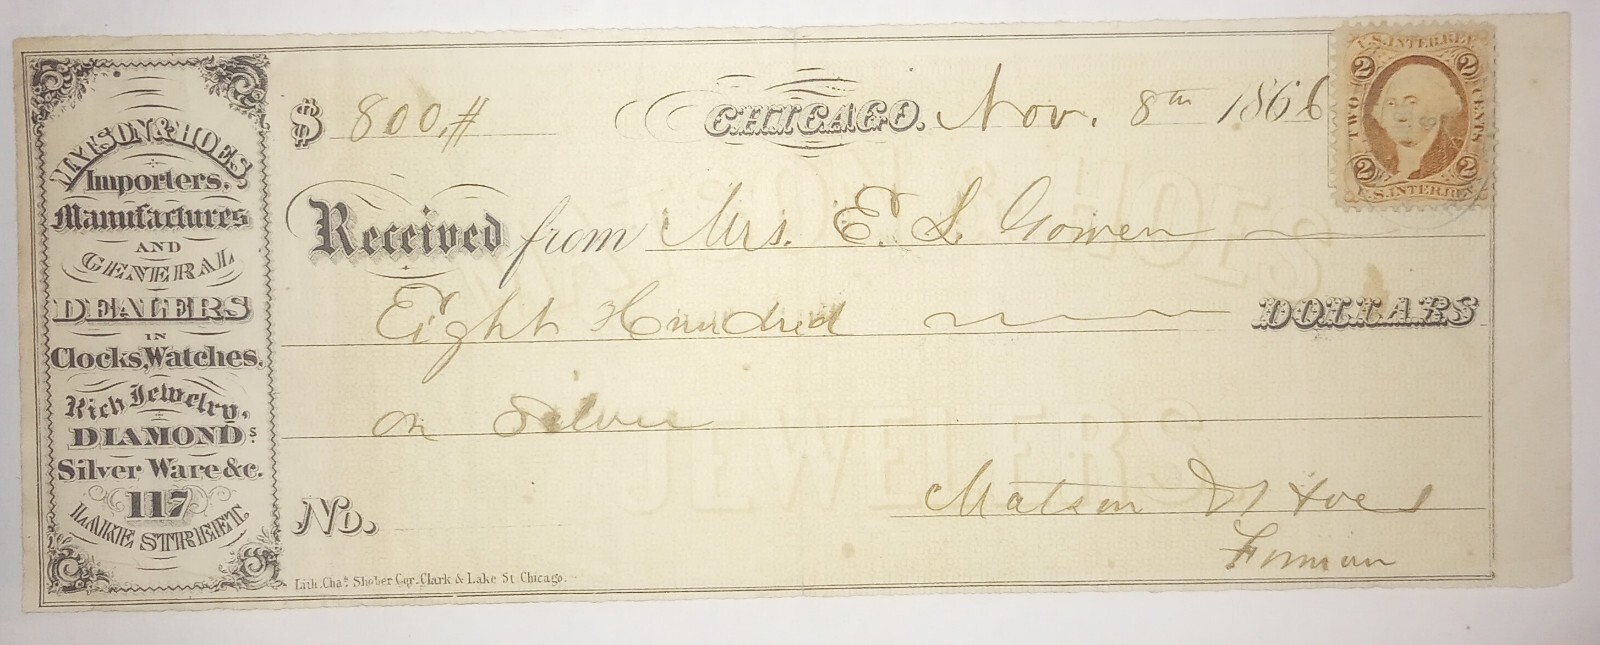 MATSON & HOES,
Importers,
Manufactures
AND
GENERAL
DEALERS
IN
Clocks, Watches,
Rich Jewelry,
DIAMONDS
Silver Ware &c.
117
LAKE STREET.
$ 800.#
CHICAGO. Nov. 8th 1866
Received from Mrs. E. S. Gowen
Eight Hundred DOLLARS
on Silver
No.
Matson & Hoes
Lith. Chas. Shober Cor. Clark & Lake St. Chicago.
U.S. INTER. REV.
2 2
TWO CENTS
2 2
U.S. INTER. REV.
MATSON & HOES
JEWELERS